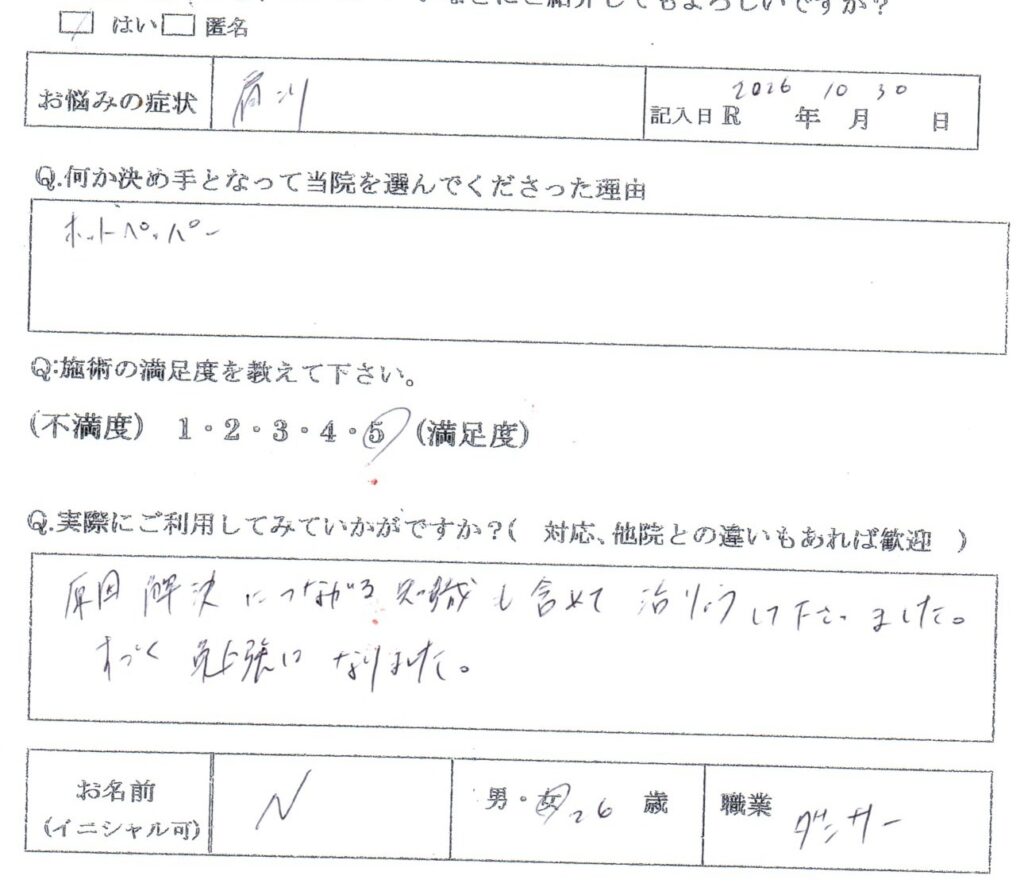 ご紹介してもよろしいですか？
はい 匿名
お悩みの症状 肩コリ 記入日 R 2026年 10月 30日
Q.何か決め手となって当院を選んでくださった理由
ホットペッパー
Q:施術の満足度を教えて下さい。
(不満度) 1・2・3・4・5 (満足度)
Q.実際にご利用してみていかがですか？( 対応、他院との違いもあれば歓迎 )
原因解決につながる知識も含めて治りょうして下さいました。
すごく勉強になりました。
お名前 N 男・女 26 歳 職業 ダンサー
(イニシャル可)